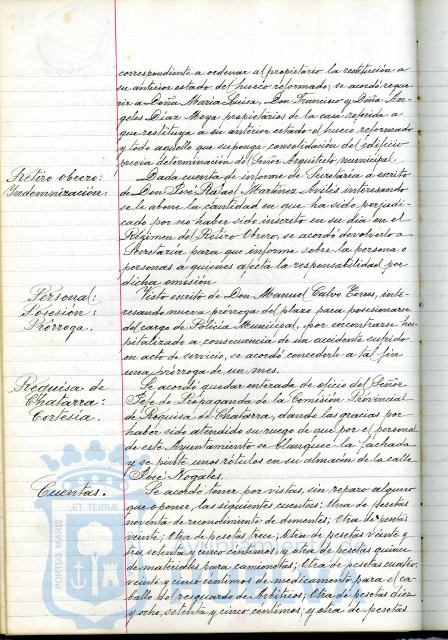 correspondiente a ordenar al propietario la restitución a
su anterior estado del hueco reformado; se acordó reque-
rir a Doña María Luisa, Don Francisco y Doña An-
geles Diaz Moya, propietarios de la casa referida a
que restituya a su anterior estado el hueco reformado
y todo aquello que suponga consolidación del edificio
previa determinación del Señor Arquitecto municipal.
Retiro obrero:
Indemnización:
Dada cuenta de informe de Secretaría a escrito
de Don José Rafael Martínez Avilés interesando
se le abone la cantidad en que ha sido perjudi-
cado por no haber sido inscrito en su día en el
Régimen del Retiro Obrero, se acordó devolverlo a
Secretaría para que informe sobre la persona o
personas a quienes afecta la responsabilidad por
dicha omisión
Personal:
Posesión:
Prórroga.
Visto escrito de Don Manuel Calvo Torres, inte-
resando nueva prórroga del plazo para posesionarse
del cargo de Policía Municipal, por encontrarse hos-
pitalizado a consecuencia de un accidente sufrido
en acto de servicio, se acordó concederle a tal fin
una prórroga de un mes.
Requisa de
Chatarra:
Cortesía.
Se acordó quedar enterada de oficio del Señor
Jefe de Propaganda de la Comisión Provincial
de Requisa de Chatarra, dando las gracias por
haber sido atendido su ruego de que por el personal
de este Ayuntamiento se blanquee la fachada
y se pinte unos rótulos en su almacén de la calle
José Nogales.
Cuentas.
Se acordó tener por vistas, sin reparo alguno
que oponer, las siguientes cuentas: Una de pesetas
noventa de reconocimiento de dementes; Otra de pesetas
veinte; Otra de pesetas trece; Otra de pesetas veinte y
tres setenta y cinco céntimos, y otra de pesetas quince
de materiales para camionetas; Otra de pesetas cuatro
veinte y cinco céntimos de medicamento para el ca-
ballo del resguardo de Arbitrios; Otra de pesetas diez
y ocho, setenta y cinco céntimos; y otra de pesetas
ET TERRÆ
PORTUS MARIS
Ayuntamiento